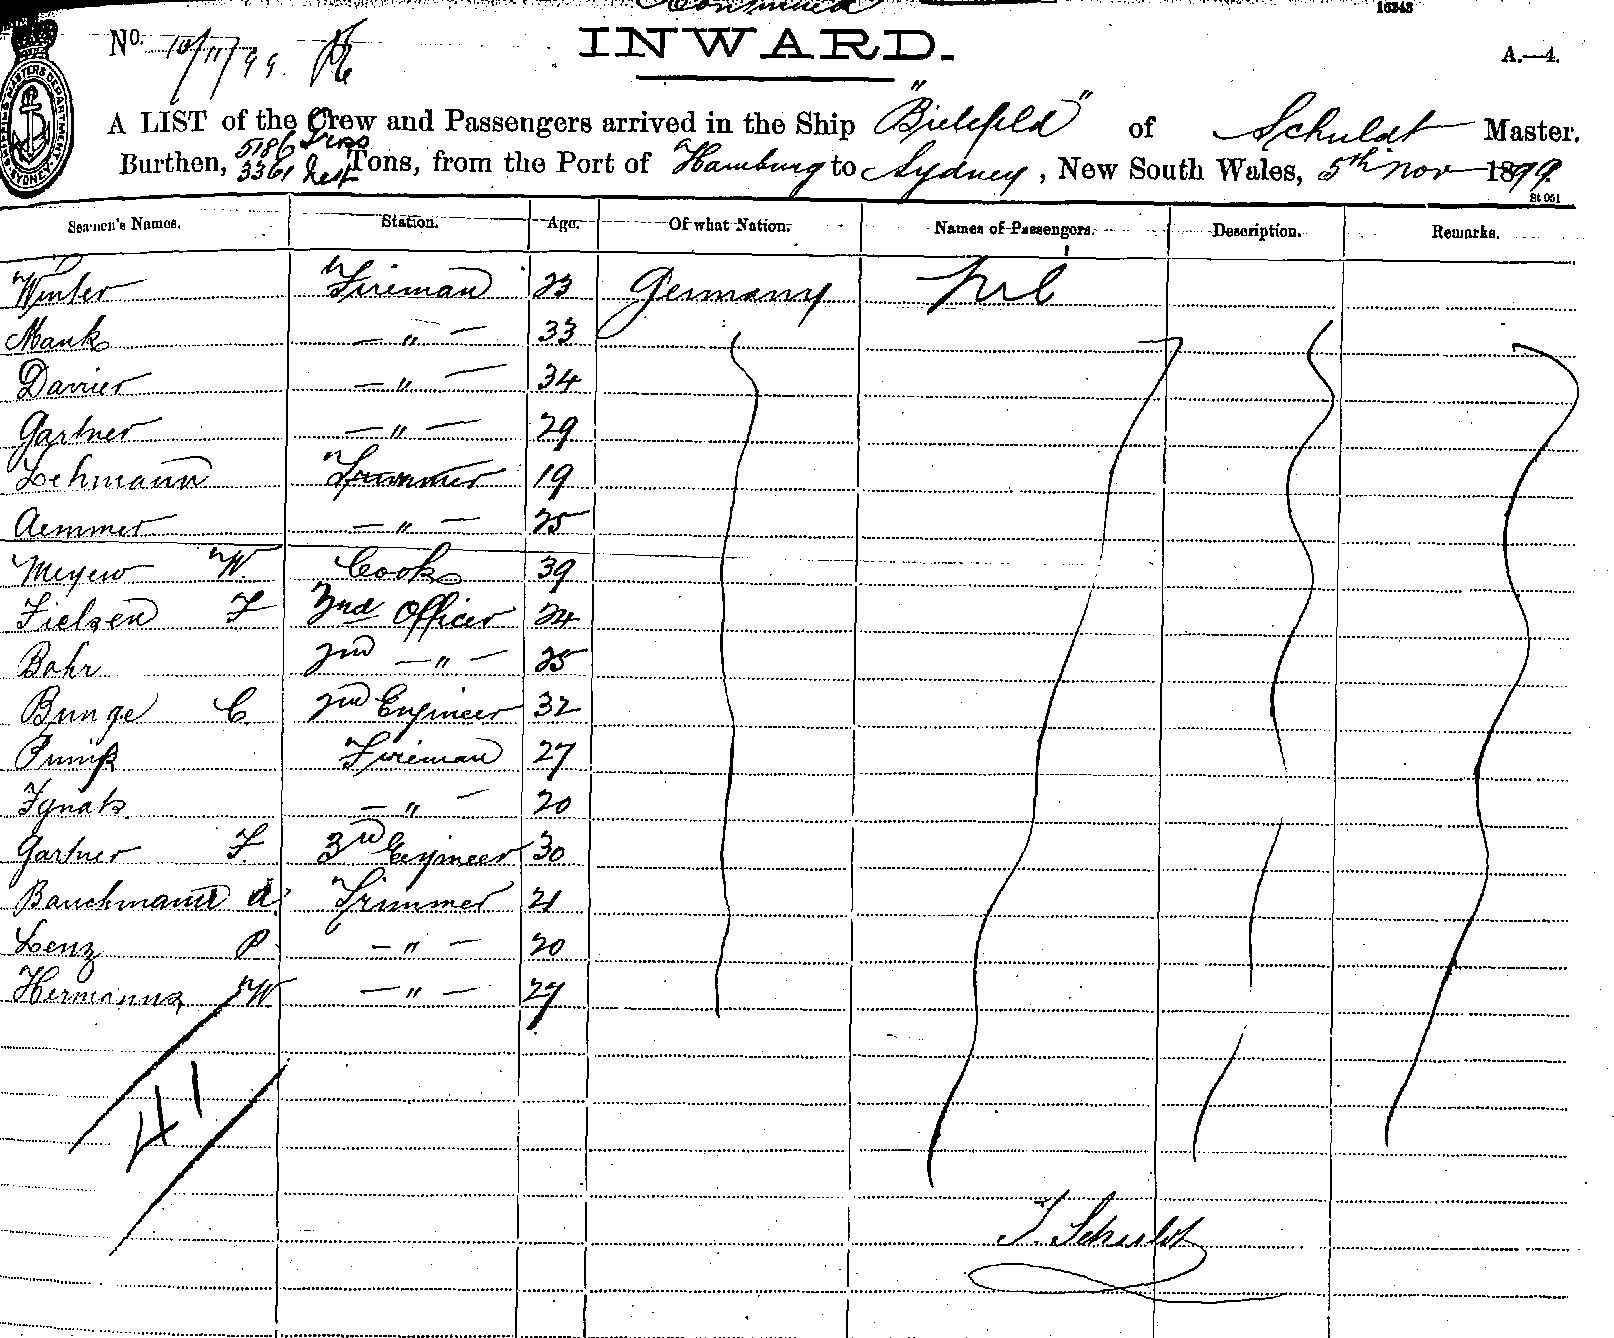 Continued
16343
No. 10/11/99.
INWARD.
A.—4.
A LIST of the Crew and Passengers arrived in the Ship "Bielefeld" of Schuldt Master.
Burthen, 5186 Gross 3361 Nett Tons, from the Port of Hamburg to Sydney, New South Wales, 5th Nov 1899
St 051
Seamen's Names. Station. Age. Of what Nation. Names of Passengers. Description. Remarks.
Winter Fireman 23 Germany Nil
Mank — " — 33
Darrier — " — 34
Gartner — " — 29
Lehmann Trimmer 19
Aemmer — " — 25
Meyer W. Cook 39
Fielsen F 2nd Officer 24
Bohr 2nd — " — 25
Bunge C. 2nd Engineer 32
Fireman 27
Ignats — " — 20
Gartner F. 3rd Engineer 30
Bauchmann A. Trimmer 21
Lenz P. — " — 20
Hermanns W — " — 27
41
J. Schuldt